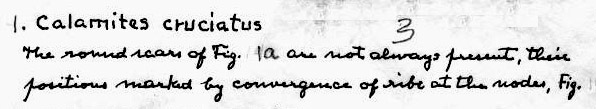 1. Calamites cruciatus
3
The round scars of Fig. 1a are not always present, their
positions marked by convergence of ribs at the nodes, Fig.